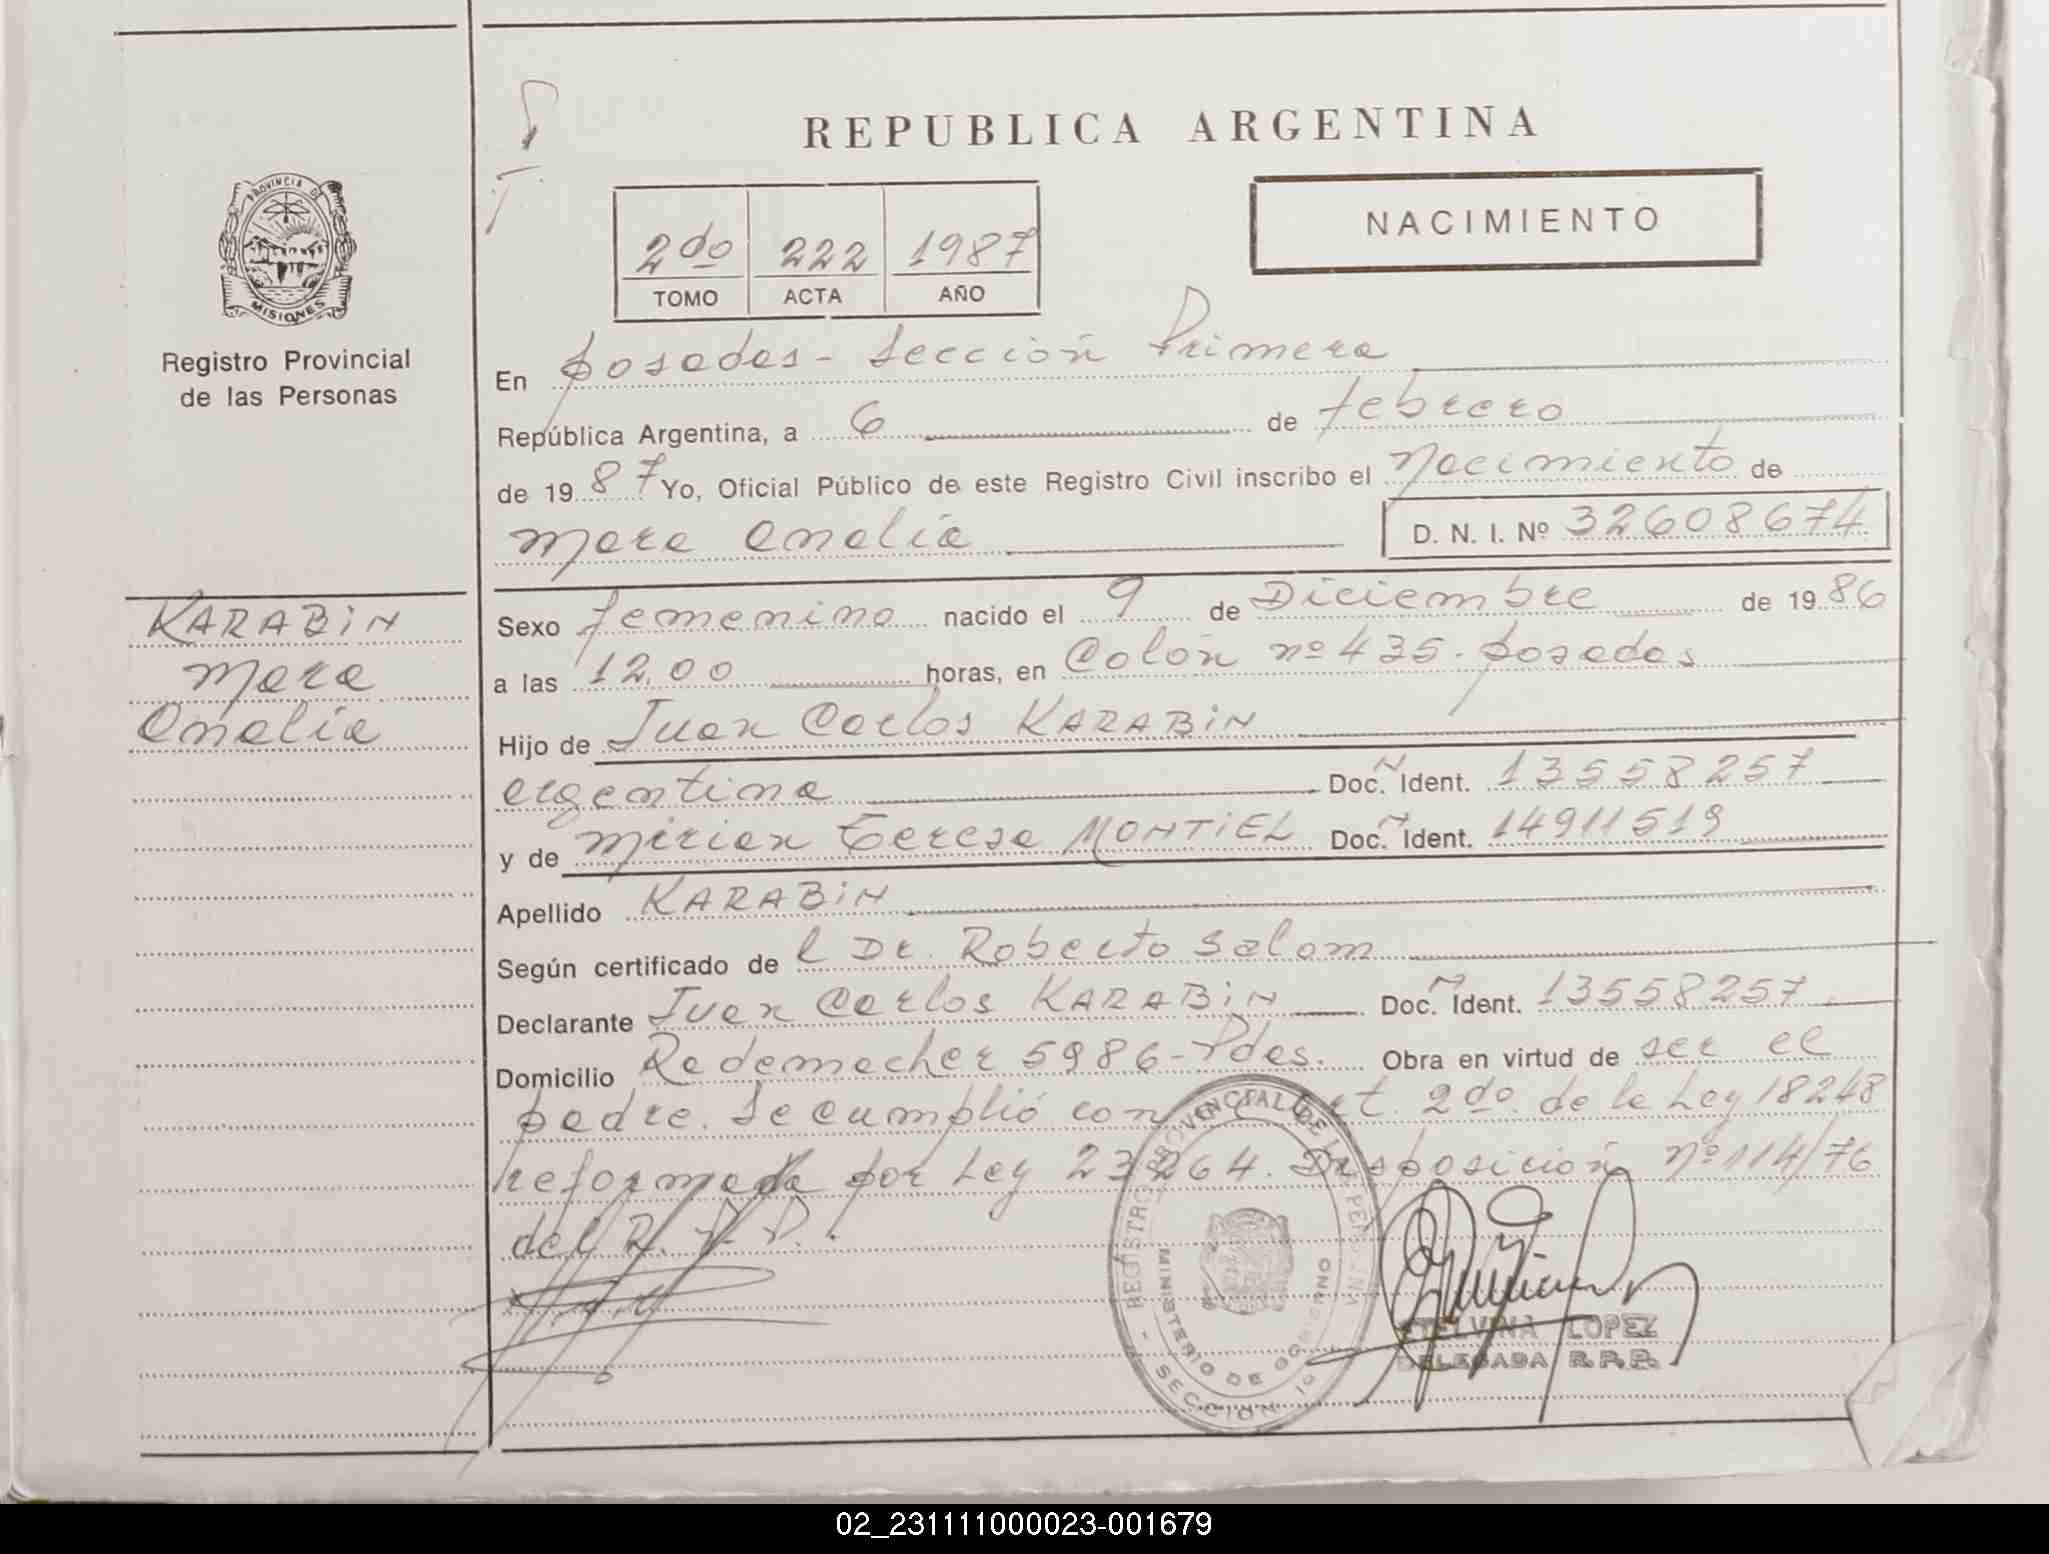 REPUBLICA ARGENTINA
NACIMIENTO
2do 222 1987
TOMO ACTA AÑO
PROVINCIA DE
MISIONES
Registro Provincial
de las Personas
En Posadas - Sección Primera
República Argentina, a 6 de febrero
de 1987 Yo, Oficial Público de este Registro Civil inscribo el nacimiento de
Mara Analía D. N. I. Nº 32608674
KARABIN
Mara
Analía
Sexo femenino nacido el 9 de Diciembre de 1986
a las 12.00 horas, en Colón nº 435. Posadas
Hijo de Juan Carlos KARABIN
argentina Doc. N Ident. 13558257
y de Mirian Teresa MONTIEL Doc. N Ident. 14911519
Apellido KARABIN
Según certificado de l Dr. Roberto Salom
Declarante Juan Carlos KARABIN Doc. N Ident. 13558257
Domicilio Rademacher 5986 - Pdas. Obra en virtud de ser el
padre. Se cumplió con el Art. 2do. de la Ley 18248
reformada por Ley 23264. Disposición nº 114/76
del R. P. P.
REGISTRO PROVINCIAL DE LAS PERSONAS
MINISTERIO DE GOBIERNO
- SECCION 1º
ETELVINA LOPEZ
DELEGADA R.P.P.
02_231111000023-001679